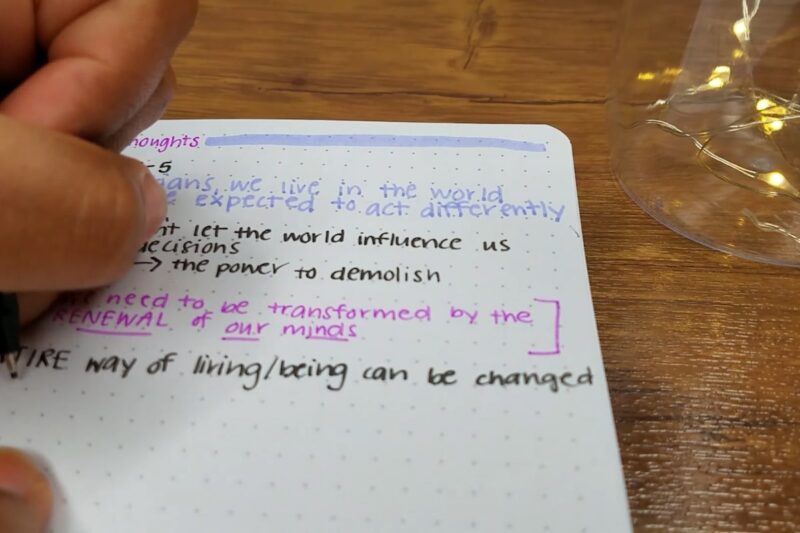 houghts
-5
ians, we live in the world
e expected to act differently
n't let the world influence us
decisions
→ the power to demolish
need to be transformed by the
RENEWAL of our minds
TIRE way of living/being can be changed